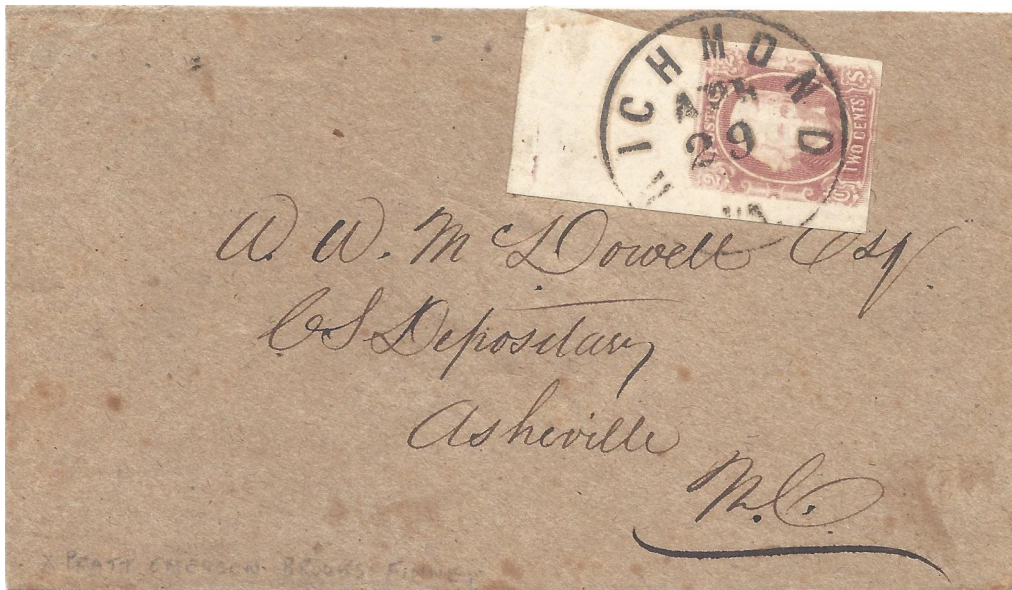 RICHMOND
APR
29
VA.
POSTA
TWO CENTS
2
W. W. McDowell Esq.
CS Depositary
Asheville
N.C.
X PRATT EMERSON BROOKS FINNEY